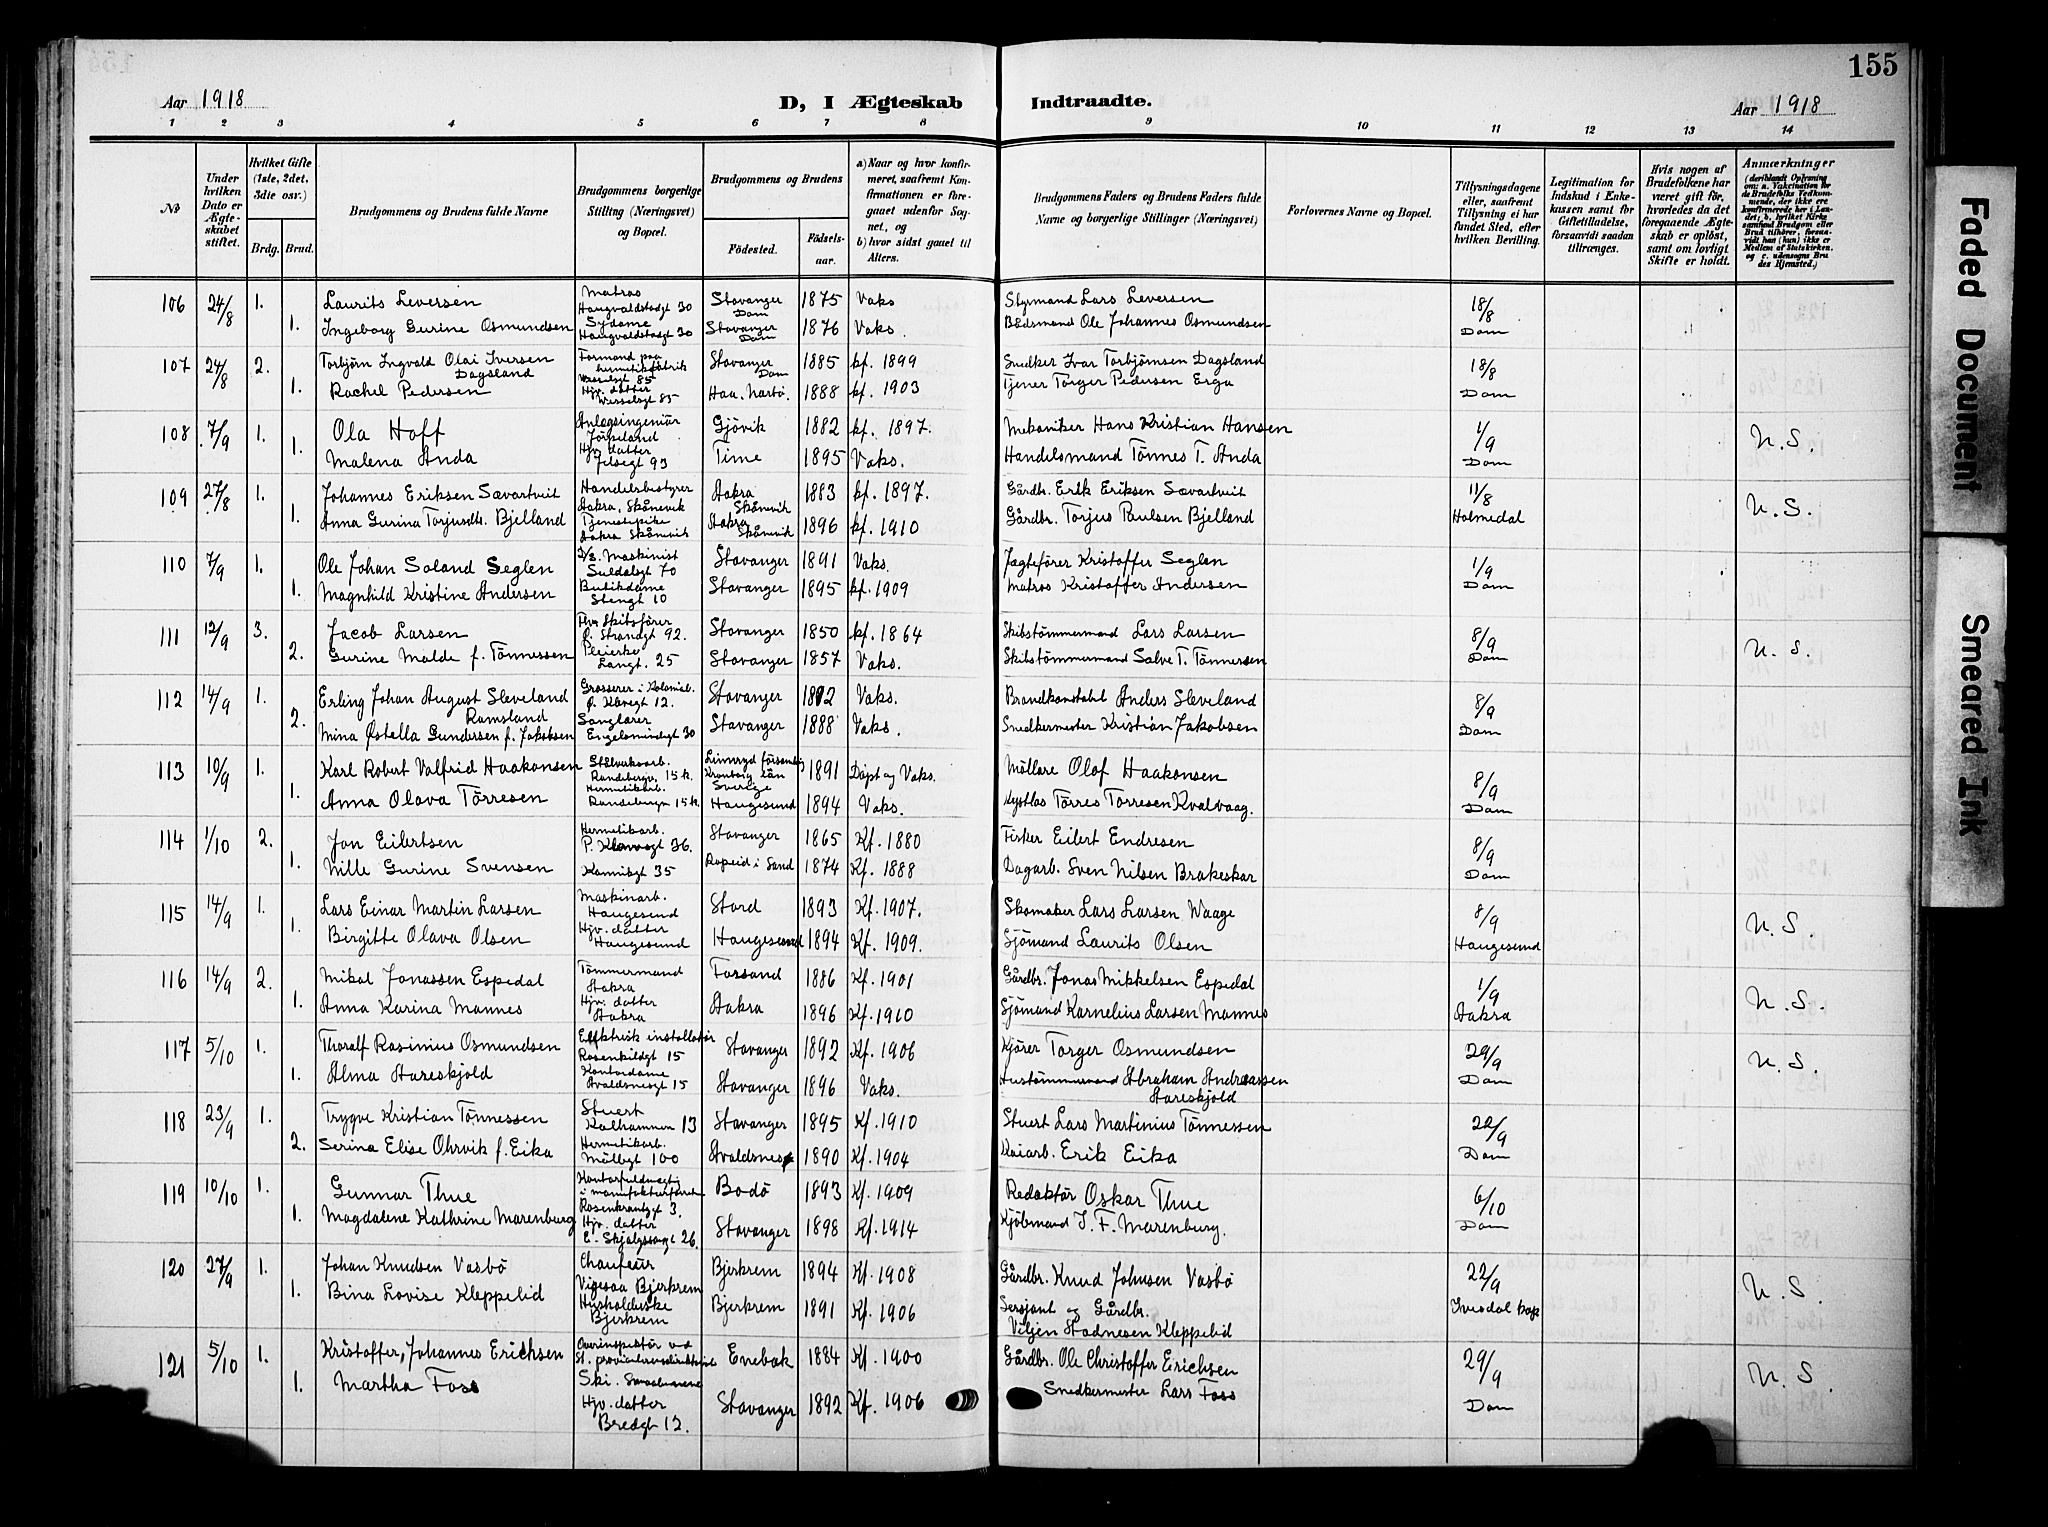 155
Aar 1918
D, I Ægteskab
Indtraadte.
Aar 1918
1 2 3 4 5 6 7 8 9 10 11 12 13 14
№
Under hvilken Dato er Ægteskabet stiftet.
Hvilket Gifte (1ste, 2det, 3die osv.)
Brdg. Brud.
Brudgommens og Brudens fulde Navne
Brudgommens borgerlige Stilling (Næringsvei) og Bopæl.
Brudgommens og Brudens
Fødested.
Fødselsaar.
a) Naar og hvor konfirmeret, saafremt Konfirmationen er foregaaet udenfor Sognet, og
b) hvor sidst gaaet til Alters.
Brudgommens Faders og Brudens Faders fulde Navne og borgerlige Stillinger (Næringsvei)
Forlovernes Navne og Bopæl.
Tillysningsdagene eller, saafremt Tillysning ei har fundet Sted, efter hvilken Bevilling.
Legitimation for Indskud i Enkekassen samt for Giftetilladelse, forsaavidt saadan tiltrænges.
Hvis nogen af Brudefolkene har været gift før, hvorledes da det foregaaende Ægteskab er opløst, samt om lovligt Skifte er holdt.
Anmærkninger
(deriblandt Oplysning om: a. Vakcination for de Brudefolks Vedkommende, der ikke ere konfirmerede her i Landet; b. hvilket Kirkesamfund Brudgom eller Brud tilhører, forsaavidt han (hun) ikke er Medlem af Statskirken, og c. udensogns Brudes Hjemsted.)
106 24/8 1. Laurits Leversen Matros Haugvaldstadgt 30 Stavanger Dom 1875 Vaks Styrmand Lars Leversen 18/8
1. Ingeborg Gurine Osmundsen Sydame Haugvaldstadgt 30 Stavanger Dom 1876 Vaks. Baadsmand Ole Johannes Osmundsen Dom
107 24/8 2. Torbjørn Ingvald Olai Iversen Dagsland Formand paa hermetikfabrik Stavanger Dom 1885 kf. 1899 Snedker Ivar Torbjørnsen Dagsland 18/8
1. Rachel Pedersen Hjv. datter Haa. Nærbø. 1888 kf. 1903 Tjener Torger Pedersen Erga Dom
108 7/9 1. Ola Hoff Anlægsingeniør Jørpeland Gjövik 1882 kf. 1897. Mekaniker Hans Kristian Hansen 1/9 U.S.
1. Malena Anda Hjv. datter Time 1895 Vaks. Handelsmand Tönnes T. Anda Dom
109 27/8 1. Johannes Eriksen Sævartveit Handelsbestyrer Aakra, Skånevik Aakra Skånevik 1883 kf. 1897. Gårdb. Erik Eriksen Sævartveit 11/8 U.S.
1. Anna Gurina Torjusdt. Bjelland Tjenestepike Aakra Skånevik Aakra Skånevik 1896 kf. 1910 Gårdbr. Torjus Paulsen Bjelland Holmedal
110 7/9 1. Ole Johan Soland Seglen D/s. Maskinist Suldalsgt 70 Stavanger 1891 Vaks. Jagtefører Kristoffer Seglen 1/9
1. Magnhild Kristine Andersen Butikdame Stengt 10 Stavanger 1895 kf. 1909 Matros Kristoffer Andersen Dom
111 12/9 3. Jacob Larsen Fhv. Skibsfører Ø. Strandgt 92. Stavanger 1850 kf. 1864 Skibstömmermand Lars Larsen 8/9 U.S.
2. Gurine Malde f. Tönnessen Pleierske Langt. 25 Stavanger 1857 Vaks. Skibstömmermand Salve T. Tönnesen Dom
112 14/9 1. Erling Johan August Sleveland Ramsland Grosserer i Kolonial. Stavanger 1892 Vaks. Brandkonstabel Anders Sleveland 8/9
2. Mina Østella Gundersen f. Jakobsen Sanglærer Engelsmindegt 30 Stavanger 1888 Vaks. Snedkermester Kristian Jakobsen Dom
113 10/9 1. Karl Robert Valfrid Haakonsen Randabergv. 15 k. Kronborg län Sverige 1891 Döpt og Vaks. Möllare Olof Haakonsen 8/9
1. Anna Olava Törresen Hermetikarb. Randabergv 15 k. Haugesund 1894 Vaks. Törres Torresen Kvalvaag. Dom
114 1/10 2. Jon Eilertsen Hermetikarb. P. Klowsgt 36. Stavanger 1865 Kf. 1880 Fisker Eilert Endresen 8/9
1. Nille Gurine Svensen Kannikgt 35 Ropeid i Sand 1874 Kf. 1888 Dagarb. Sven Nilsen Brakeskar Dom
115 14/9 1. Lars Einar Martin Larsen Maskinarb. Haugesund Stord 1893 Kf. 1907. Skomaker Lars Larsen Waage 8/9 U.S.
1. Birgitte Olava Olsen Hjv. datter Haugesund Haugesund 1894 Kf. 1909. Sjömand Laurits Olsen Haugesund
116 14/9 2. Mikal Jonassen Espedal Tömmermand Aakra Forsand 1886 Kf. 1901 Gårdbr. Jonas Mikkelsen Espedal 1/9 U.S.
1. Anna Karina Mannes Hjv. datter Aakra Aakra 1896 Kf. 1910 Sjömand Kornelius Larsen Mannes Aakra
117 5/10 1. Thoralf Rasinius Osmundsen Elektrisk installatør Rosenkildegt 15 Stavanger 1892 Kf. 1906 Kjører Torger Osmundsen 29/9 U.S.
1. Alma Aareskjold Kontordame Avaldsnesgt 15 Stavanger 1896 Vaks. Hustömmermand Abraham Andreassen Aareskjold Dom
118 23/9 1. Trygve Kristian Tönnessen Stuert Kalhammen 13 Stavanger 1895 Kf. 1910 Stuert Lars Martinius Tönnessen 22/9
2. Serina Elise Ohrvik f. Eika Hermetikarb. Møllegt 100 Avaldsnes 1890 Kf. 1904 Kaiarb. Erik Eika Dom
119 10/10 1. Gunnar Thue Kontorfuldmægtig i manufakturforretn. Rosenkrantzgt 3. Bodö 1893 Kf. 1909 Redaktör Oskar Thue 6/10
1. Magdalene Kathrine Marenburg Hjv. datter E. Skjalgssøngt 26. Stavanger 1898 Kf. 1914 Kjöbmand J. F. Marenburg. Dom
120 27/9 1. Johan Knudsen Vasbö Chauffeur Vigesaa Bjerkrem Bjerkrem 1894 Kf. 1908 Gårdbr. Knud Johnsen Vasbö 22/9 U.S.
1. Bina Lovise Kleppelid Husholderske Bjerkrem Bjerkrem 1891 Kf. 1906 Sersjant og Gårdbr. Viljen Stadnesen Kleppelid Ivesdal kap
121 5/10 1. Kristoffer Johannes Erichsen Overinspektør ved St. provianteringsdirektorat Ski. Smaalenene Enebak 1884 Kf. 1900 Gårdbr. Ole Christoffer Erichsen 29/9 U.S.
1. Martha Foss Hjv. datter Bredgt 12. Stavanger 1892 Kf. 1906 Snedkermester Lars Foss Dom
Faded Document
Smeared Ink